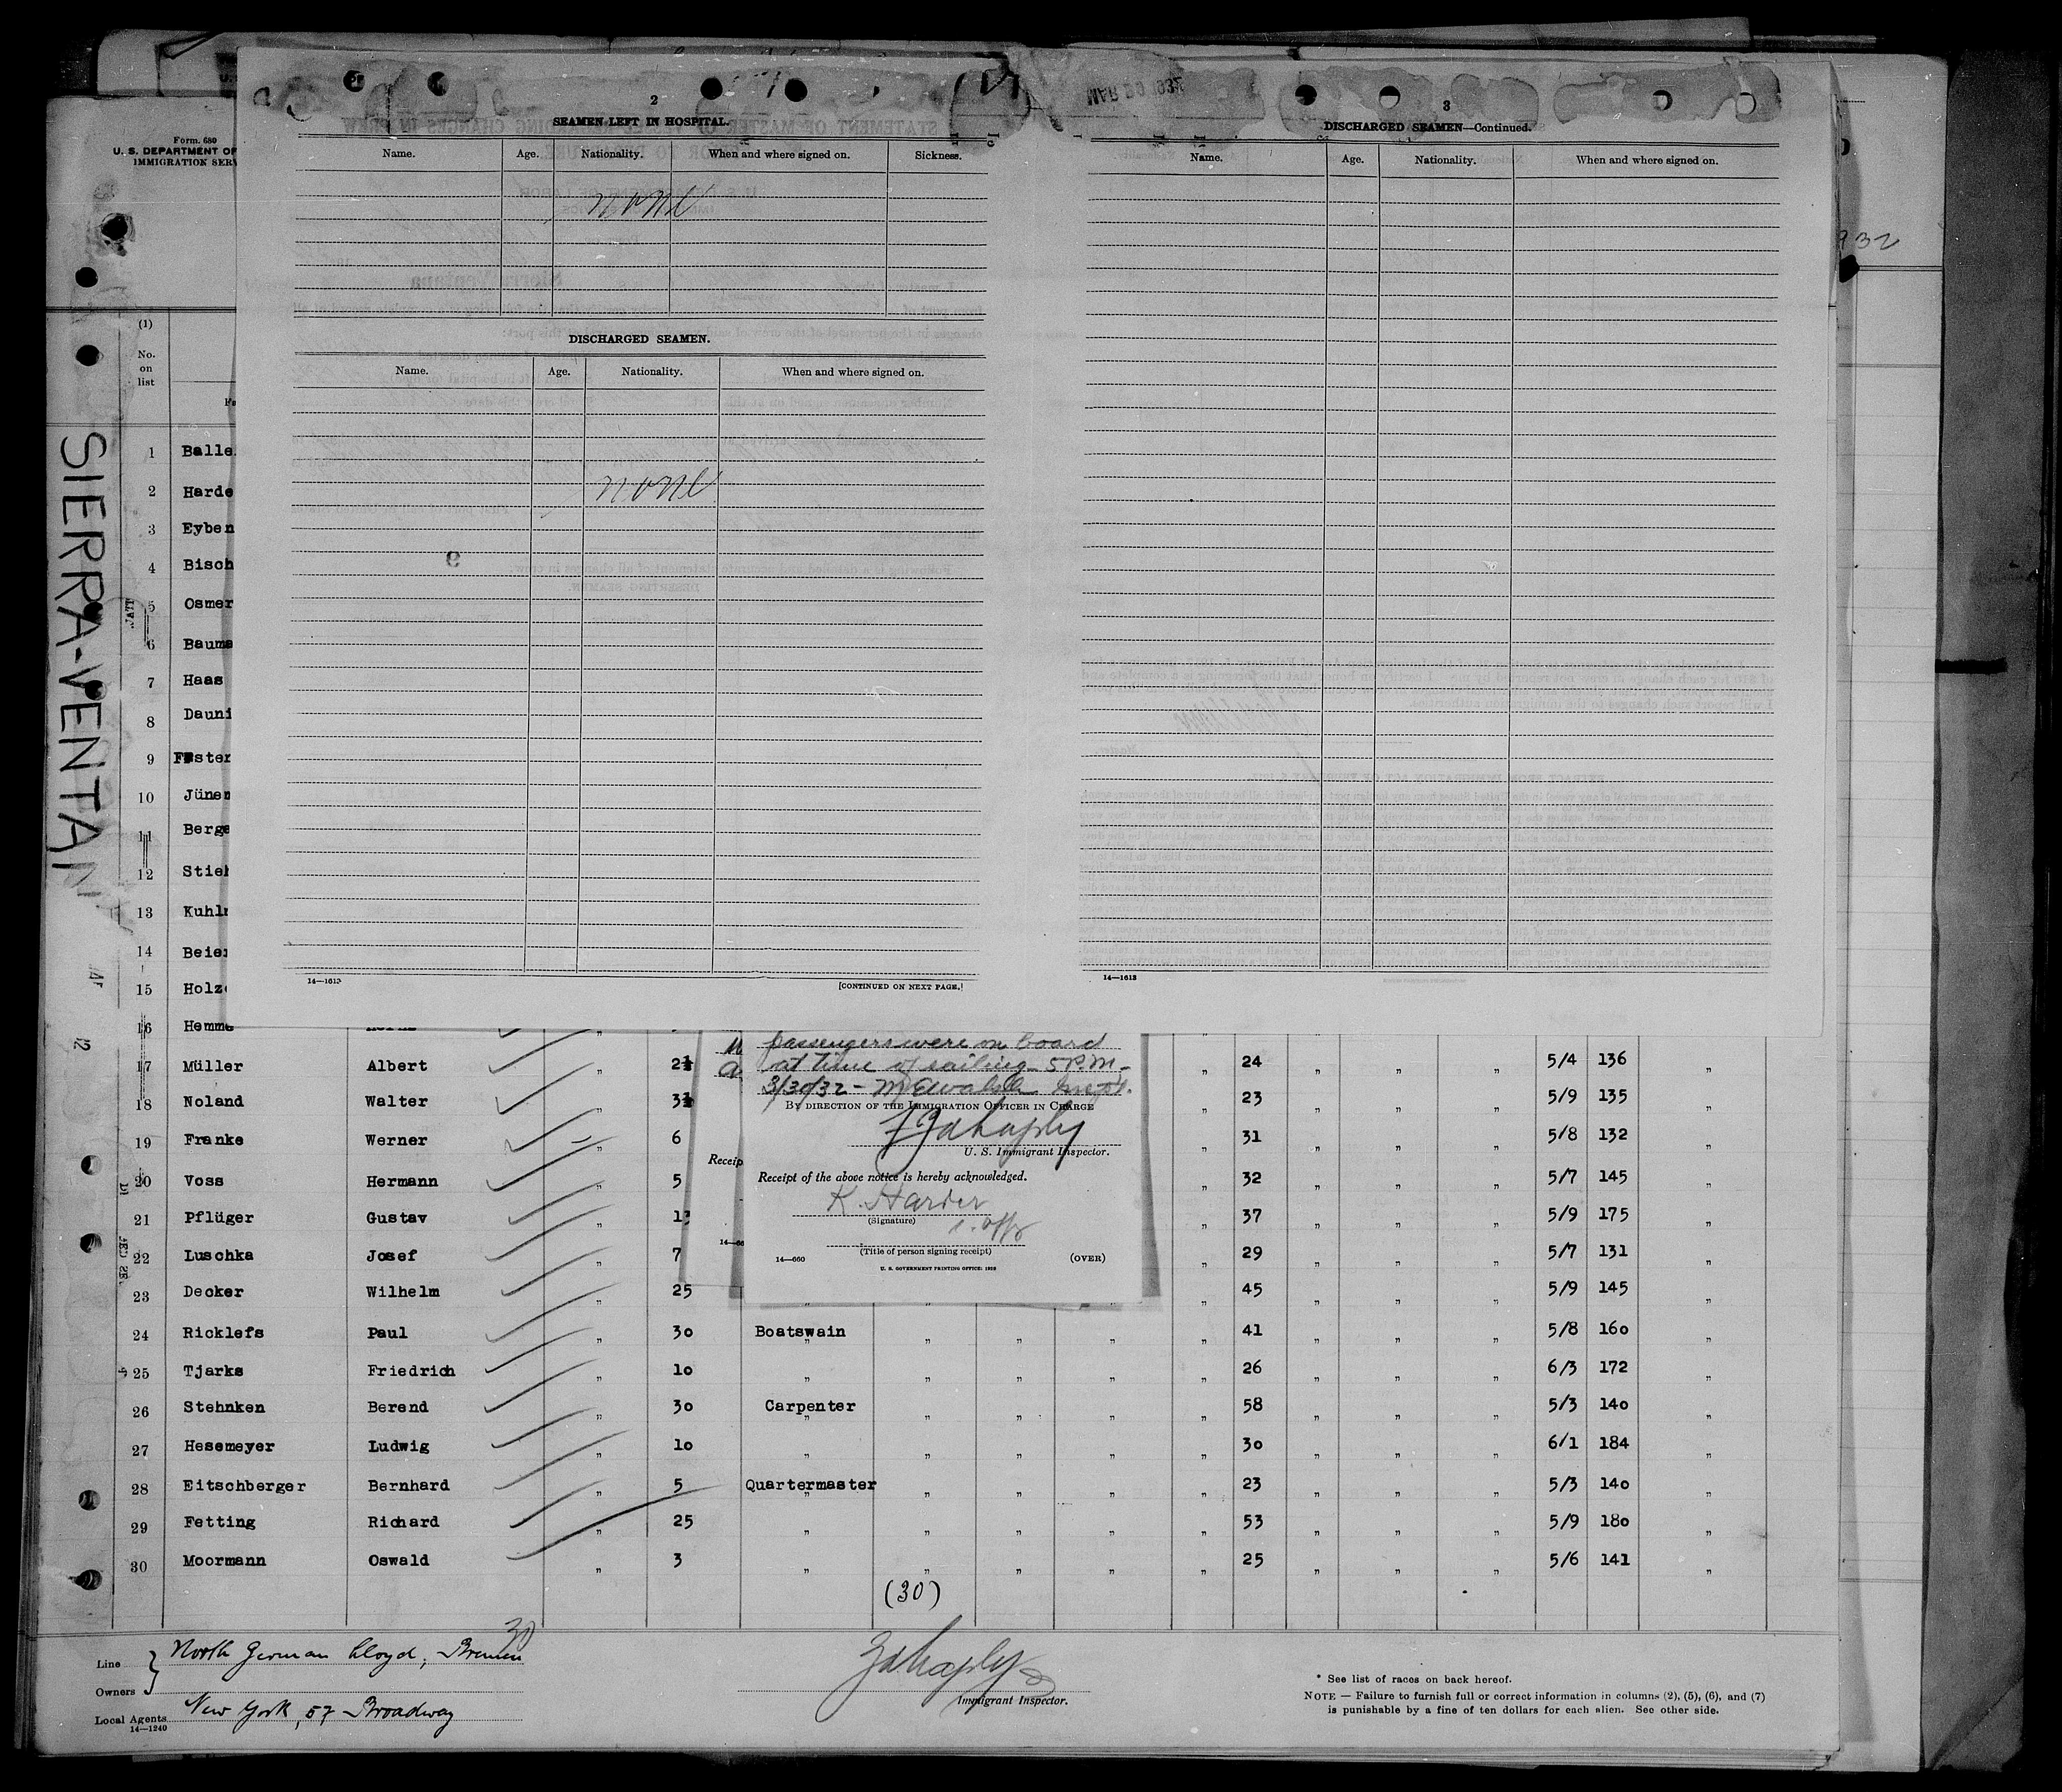 MAR 29 1932
2
SEAMEN LEFT IN HOSPITAL.
Name. Age. Nationality. When and where signed on. Sickness.
none
DISCHARGED SEAMEN.
Name. Age. Nationality. When and where signed on.
none
14—1613
[CONTINUED ON NEXT PAGE.]
3
DISCHARGED SEAMEN—Continued.
Name. Age. Nationality. When and where signed on.
14—1613
932
Form 680
U. S. DEPARTMENT OF
IMMIGRATION SERV
SIERRA-VENTANA
(1)
No.
on
list
1 Balle
2 Harde
3 Eyben
4 Bisch
5 Osmer
6 Bauma
7 Haas
8 Dauni
9 Fster
10 Jünem
11 Berge
12 Stieh
13 Kuhlm
14 Beier
15 Holz
16 Hemme
17 Müller Albert „ 2½ „ 24 „ „ „ 5/4 136 „
18 Noland Walter „ 3½ „ 23 „ „ „ 5/9 135 „
19 Franke Werner „ 6 „ 31 „ „ „ 5/8 132 „
20 Voss Hermann „ 5 „ 32 „ „ „ 5/7 145 „
21 Pflüger Gustav „ 13 „ 37 „ „ „ 5/9 175 „
22 Luschka Josef „ 7 „ 29 „ „ „ 5/7 131 „
23 Decker Wilhelm „ 25 „ 45 „ „ „ 5/9 145 „
24 Ricklefs Paul „ 30 Boatswain „ „ „ „ 41 „ „ „ 5/8 160 „
25 Tjarks Friedrich „ 10 „ „ „ „ „ 26 „ „ „ 6/3 172 „
26 Stehnken Berend „ 30 Carpenter „ „ „ „ 58 „ „ „ 5/3 140 „
27 Hesemeyer Ludwig „ 10 „ „ „ „ „ 30 „ „ „ 6/1 184 „
28 Eitschberger Bernhard „ 5 Quartermaster „ „ „ „ 23 „ „ „ 5/3 140 „
29 Fetting Richard „ 25 „ „ „ „ „ 53 „ „ „ 5/9 180 „
30 Moormann Oswald „ 3 „ „ „ „ „ 25 „ „ „ 5/6 141 „
(30)
passengers were on board
at time of sailing 5 P.M.
3/30/32 -
BY DIRECTION OF THE IMMIGRATION OFFICER IN CHARGE
U. S. Immigrant Inspector.
Receipt of the above notice is hereby acknowledged.
K. Harder
(Signature)
1. Offz
(Title of person signing receipt)
14—660 (OVER)
U. S. GOVERNMENT PRINTING OFFICE: 1928
Receip
14—66
30
Line North German Lloyd, Bremen
Owners
Local Agents New York, 57 Broadway
14—1240
Immigrant Inspector.
* See list of races on back hereof.
NOTE — Failure to furnish full or correct information in columns (2), (5), (6), and (7)
is punishable by a fine of ten dollars for each alien. See other side.